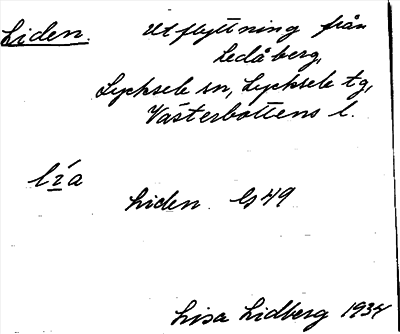 Liden. Utflyttning från
Ledåberg,
Lycksele sn, Lycksele tg,
Västerbottens l.
lía
Liden. Gs 49
Lisa Lidberg 1934